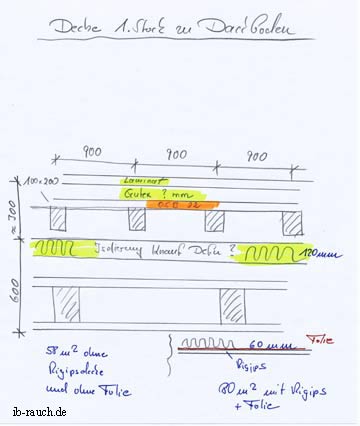 Decke 1. Stock zu Dachboden
900 900 900
Laminat
100x200 Gutex ? mm
OSB 22
≈ 300
Isolierung Knauf Decke ? 120mm
600
58 m² ohne
Rigipsdecke
und ohne Folie
60mm Folie
Rigips
80 m² mit Rigips
+ Folie
ib-rauch.de